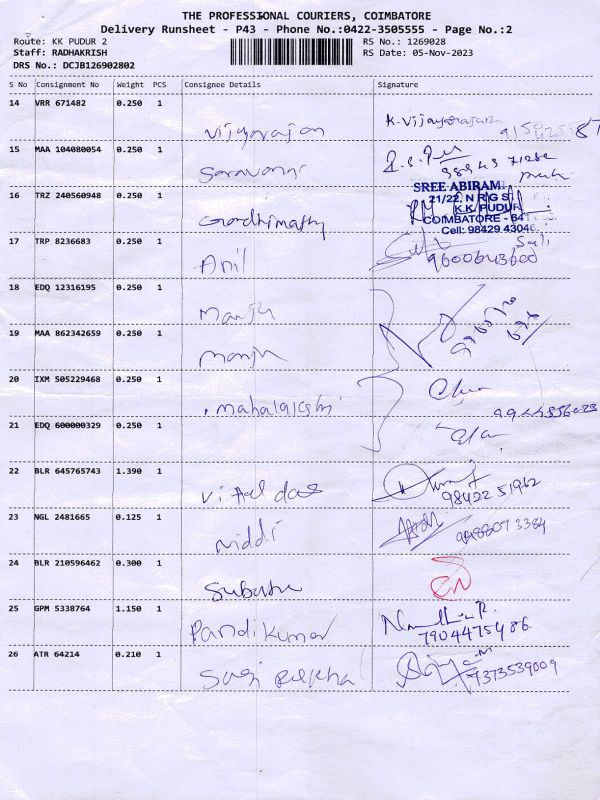 THE PROFESSIONAL COURIERS, COIMBATORE
Delivery Runsheet - P43 - Phone No.:0422-3505555 - Page No.:2
Route: KK PUDUR 2 RS No.: 1269028
Staff: RADHAKRISH RS Date: 05-Nov-2023
DRS No.: DCJB126902802
S No Consignment No Weight PCS Consignee Details Signature
14 VRR 671482 0.250 1 Vijayarajan K. Vijayarajan
15 MAA 104080054 0.250 1 Saravana
16 TRZ 240560948 0.250 1
SREE ABIRAMI
21/22, N R G S
K.K. PUDUR
COIMBATORE - 641
Cell: 98429 43046
17 TRP 8236683 0.250 1 Anil 9600643600
18 EDQ 12316195 0.250 1 Manju
19 MAA 862342659 0.250 1 Manju
20 IXM 505229468 0.250 1 Mahalakshi
21 EDQ 600000329 0.250 1
22 BLR 645765743 1.390 1 Vittal das 98422 51962
23 NGL 2481665 0.125 1 Niddi
24 BLR 210596462 0.300 1
25 GPM 5338764 1.150 1 Pandikumar 7904475486
26 ATR 64214 0.210 1 7373539009